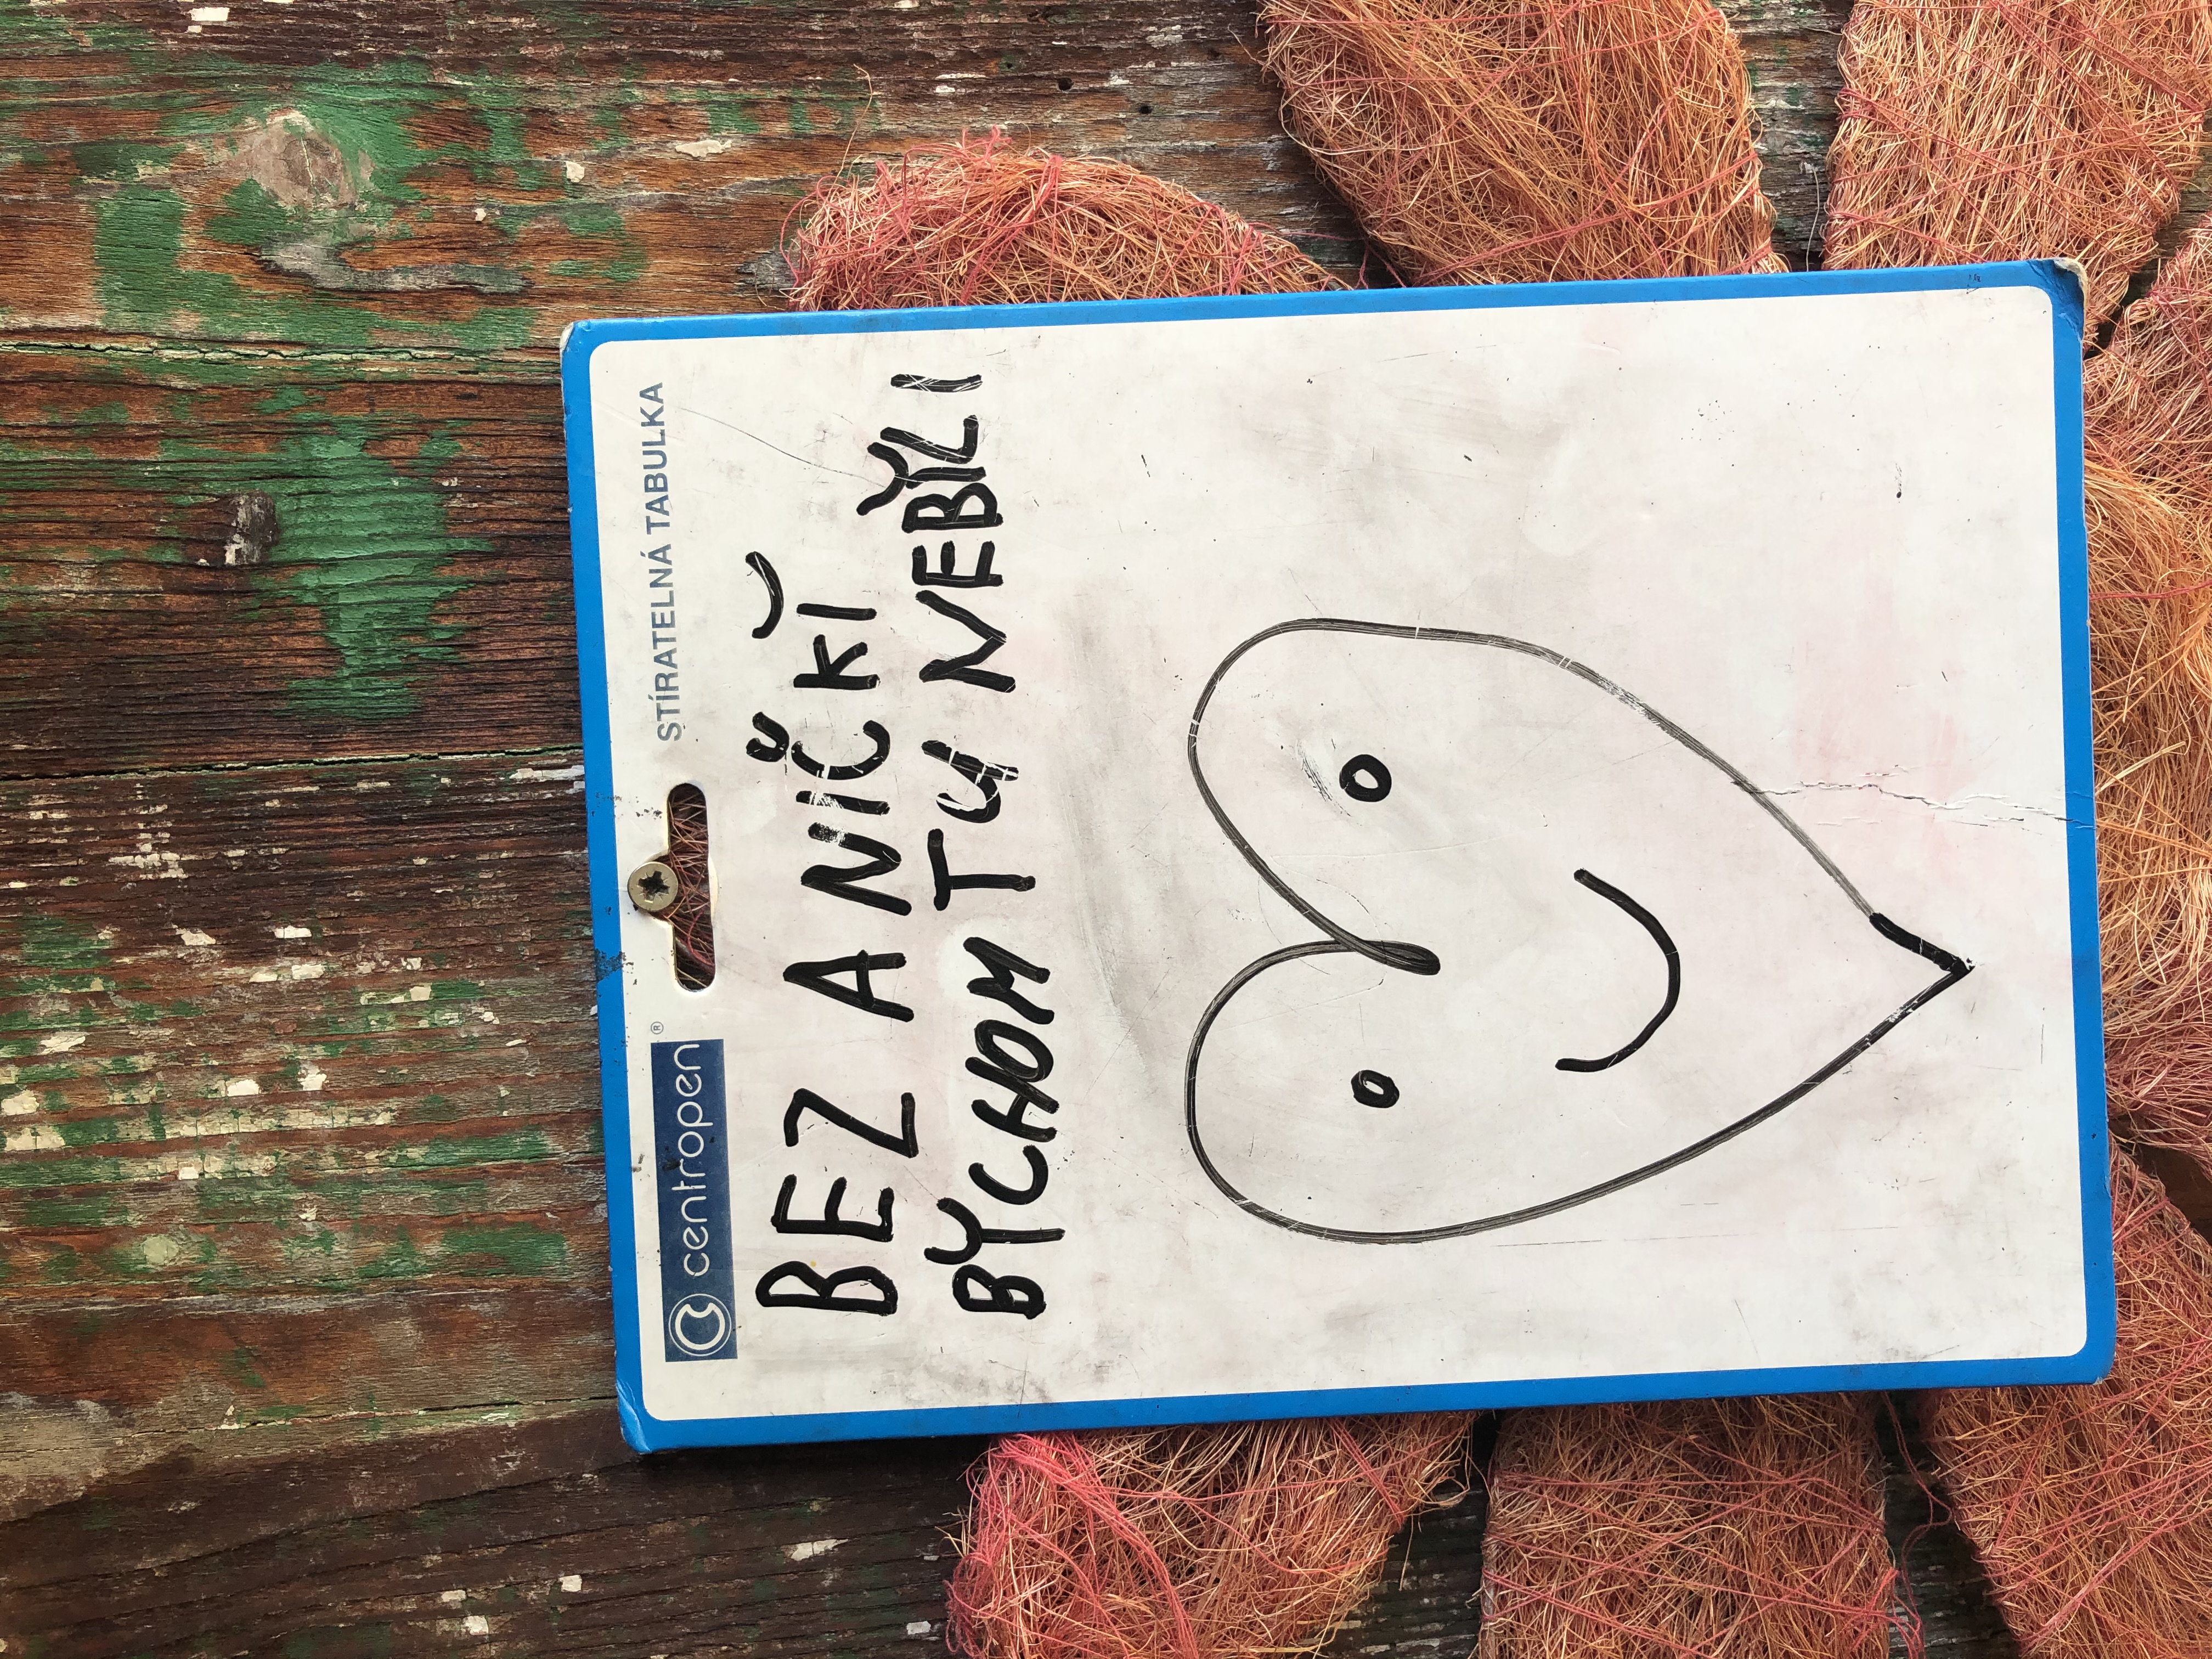 centropen ® STÍRATELNÁ TABULKA
BEZ ANIČKǏ
BYCHOM TU NEBYLI